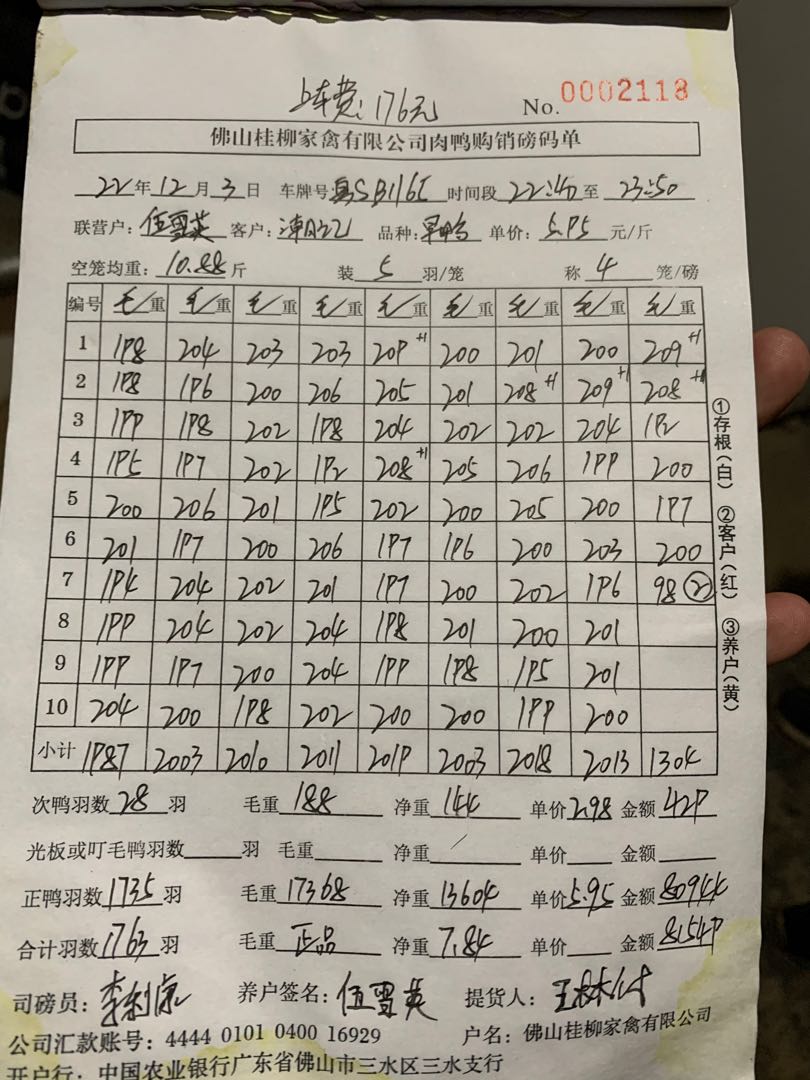 上车费:176元 No. 0002118
佛山桂柳家禽有限公司肉鸭购销磅码单
22年12月3日 车牌号 时间段22:40至23:50
联营户:伍雪英 客户: 品种:旱鸭 单价:5.95元/斤
空笼均重:10.88斤 装5羽/笼 称4笼/磅
编号 毛重 毛重 毛重 毛重 毛重 毛重 毛重 毛重 毛重
1 198 204 203 203 209+1 200 201 200 209+1
2 198 196 200 206 205 201 208+1 209+1 208+1
3 199 198 202 198 204 202 202 204 192
4 195 197 202 192 208+1 205 206 199 200
5 200 206 201 195 202 200 205 200 197
6 201 197 200 206 197 196 200 203 200
7 194 204 202 201 197 200 202 196 98②
8 199 204 202 204 198 201 200 201
9 199 197 200 204 199 198 195 201
10 204 200 198 202 200 200 199 200
小计 1987 2003 2010 2011 2019 2003 2018 2013 1304
次鸭羽数28羽 毛重188 净重144 单价2.98 金额429
光板或叮毛鸭羽数 羽 毛重 净重 / 单价 金额
正鸭羽数1735羽 毛重17368 净重13604 单价5.95 金额80944
合计羽数1763羽 毛重正品 净重7.84 单价 金额81549
司磅员: 养户签名:伍雪英 提货人:
公司汇款账号:4444 0101 0400 16929 户名:佛山桂柳家禽有限公司
开户行:中国农业银行广东省佛山市三水区三水支行
①存根(白) ②客户(红) ③养户(黄)